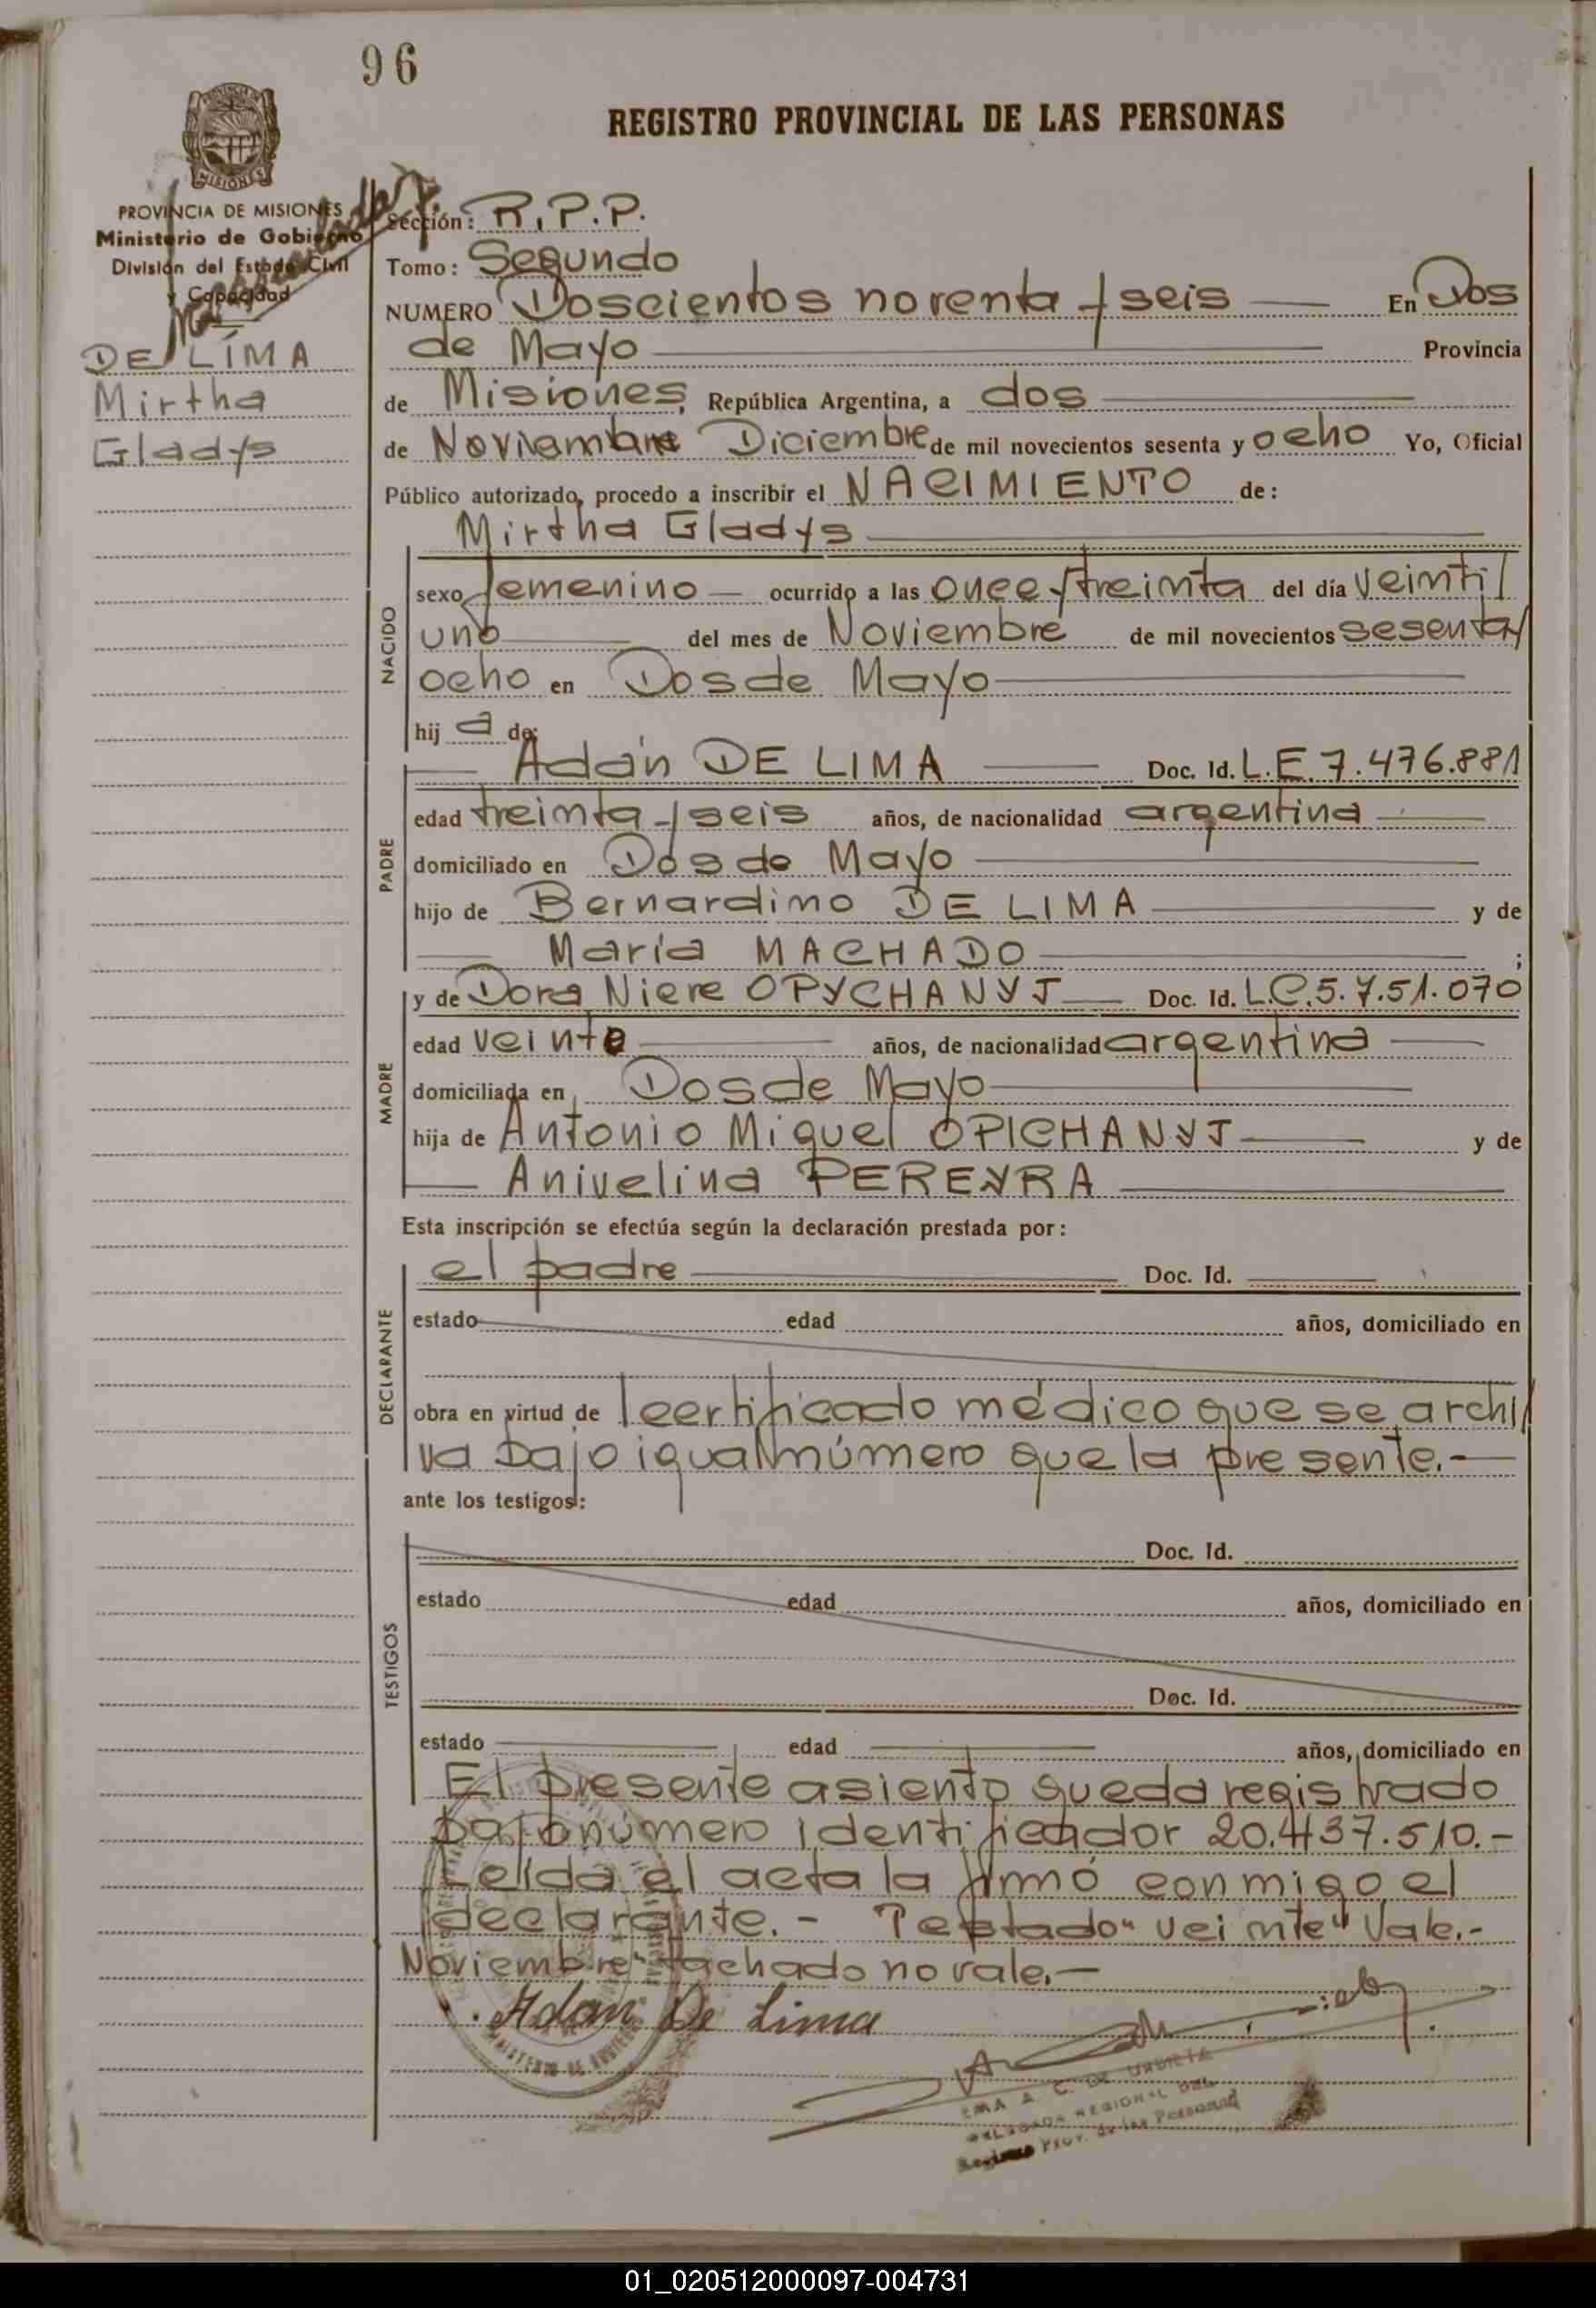 96
REGISTRO PROVINCIAL DE LAS PERSONAS
MISIONES
PROVINCIA DE MISIONES
Ministerio de Gobierno
División del Estado Civil
y Capacidad
DE LIMA
Mirtha
Gladys
Sección: R.P.P.
Tomo: Segundo
NUMERO Doscientos noventa y seis En Dos
de Mayo Provincia
de Misiones, República Argentina, a dos
de Noviembre Diciembre de mil novecientos sesenta y ocho Yo, Oficial
Público autorizado, procedo a inscribir el NACIMIENTO de:
Mirtha Gladys
NACIDO
sexo femenino ocurrido a las once y treinta del día veinti/
uno del mes de Noviembre de mil novecientos sesenta y
ocho en Dos de Mayo
hij a de:
PADRE
Adán DE LIMA Doc. Id. L.E. 7.476.881
edad treinta y seis años, de nacionalidad argentina
domiciliado en Dos de Mayo
hijo de Bernardino DE LIMA y de
María MACHADO ;
MADRE
y de Dora Niere OPYCHANYJ Doc. Id. L.C. 5.751.070
edad veinte años, de nacionalidad argentina
domiciliada en Dos de Mayo
hija de Antonio Miguel OPICHANYJ y de
Anivelina PEREYRA
Esta inscripción se efectúa según la declaración prestada por:
DECLARANTE
el padre Doc. Id.
estado edad años, domiciliado en
obra en virtud de certificado médico que se archi/
va bajo igual número que la presente.-
ante los testigos:
TESTIGOS
Doc. Id.
estado edad años, domiciliado en
Doc. Id.
estado edad años, domiciliado en
El presente asiento queda registrado
bajo número identificador 20.437.510.-
Leída el acta la firmó conmigo el
declarante.- Testado "veinte" Vale.-
Noviembre" tachado no vale.-
Adan De Lima
A. C. DE URBIETA
DELEGADA REGIONAL DEL
Registro Prov. de las Personas
01_020512000097-004731